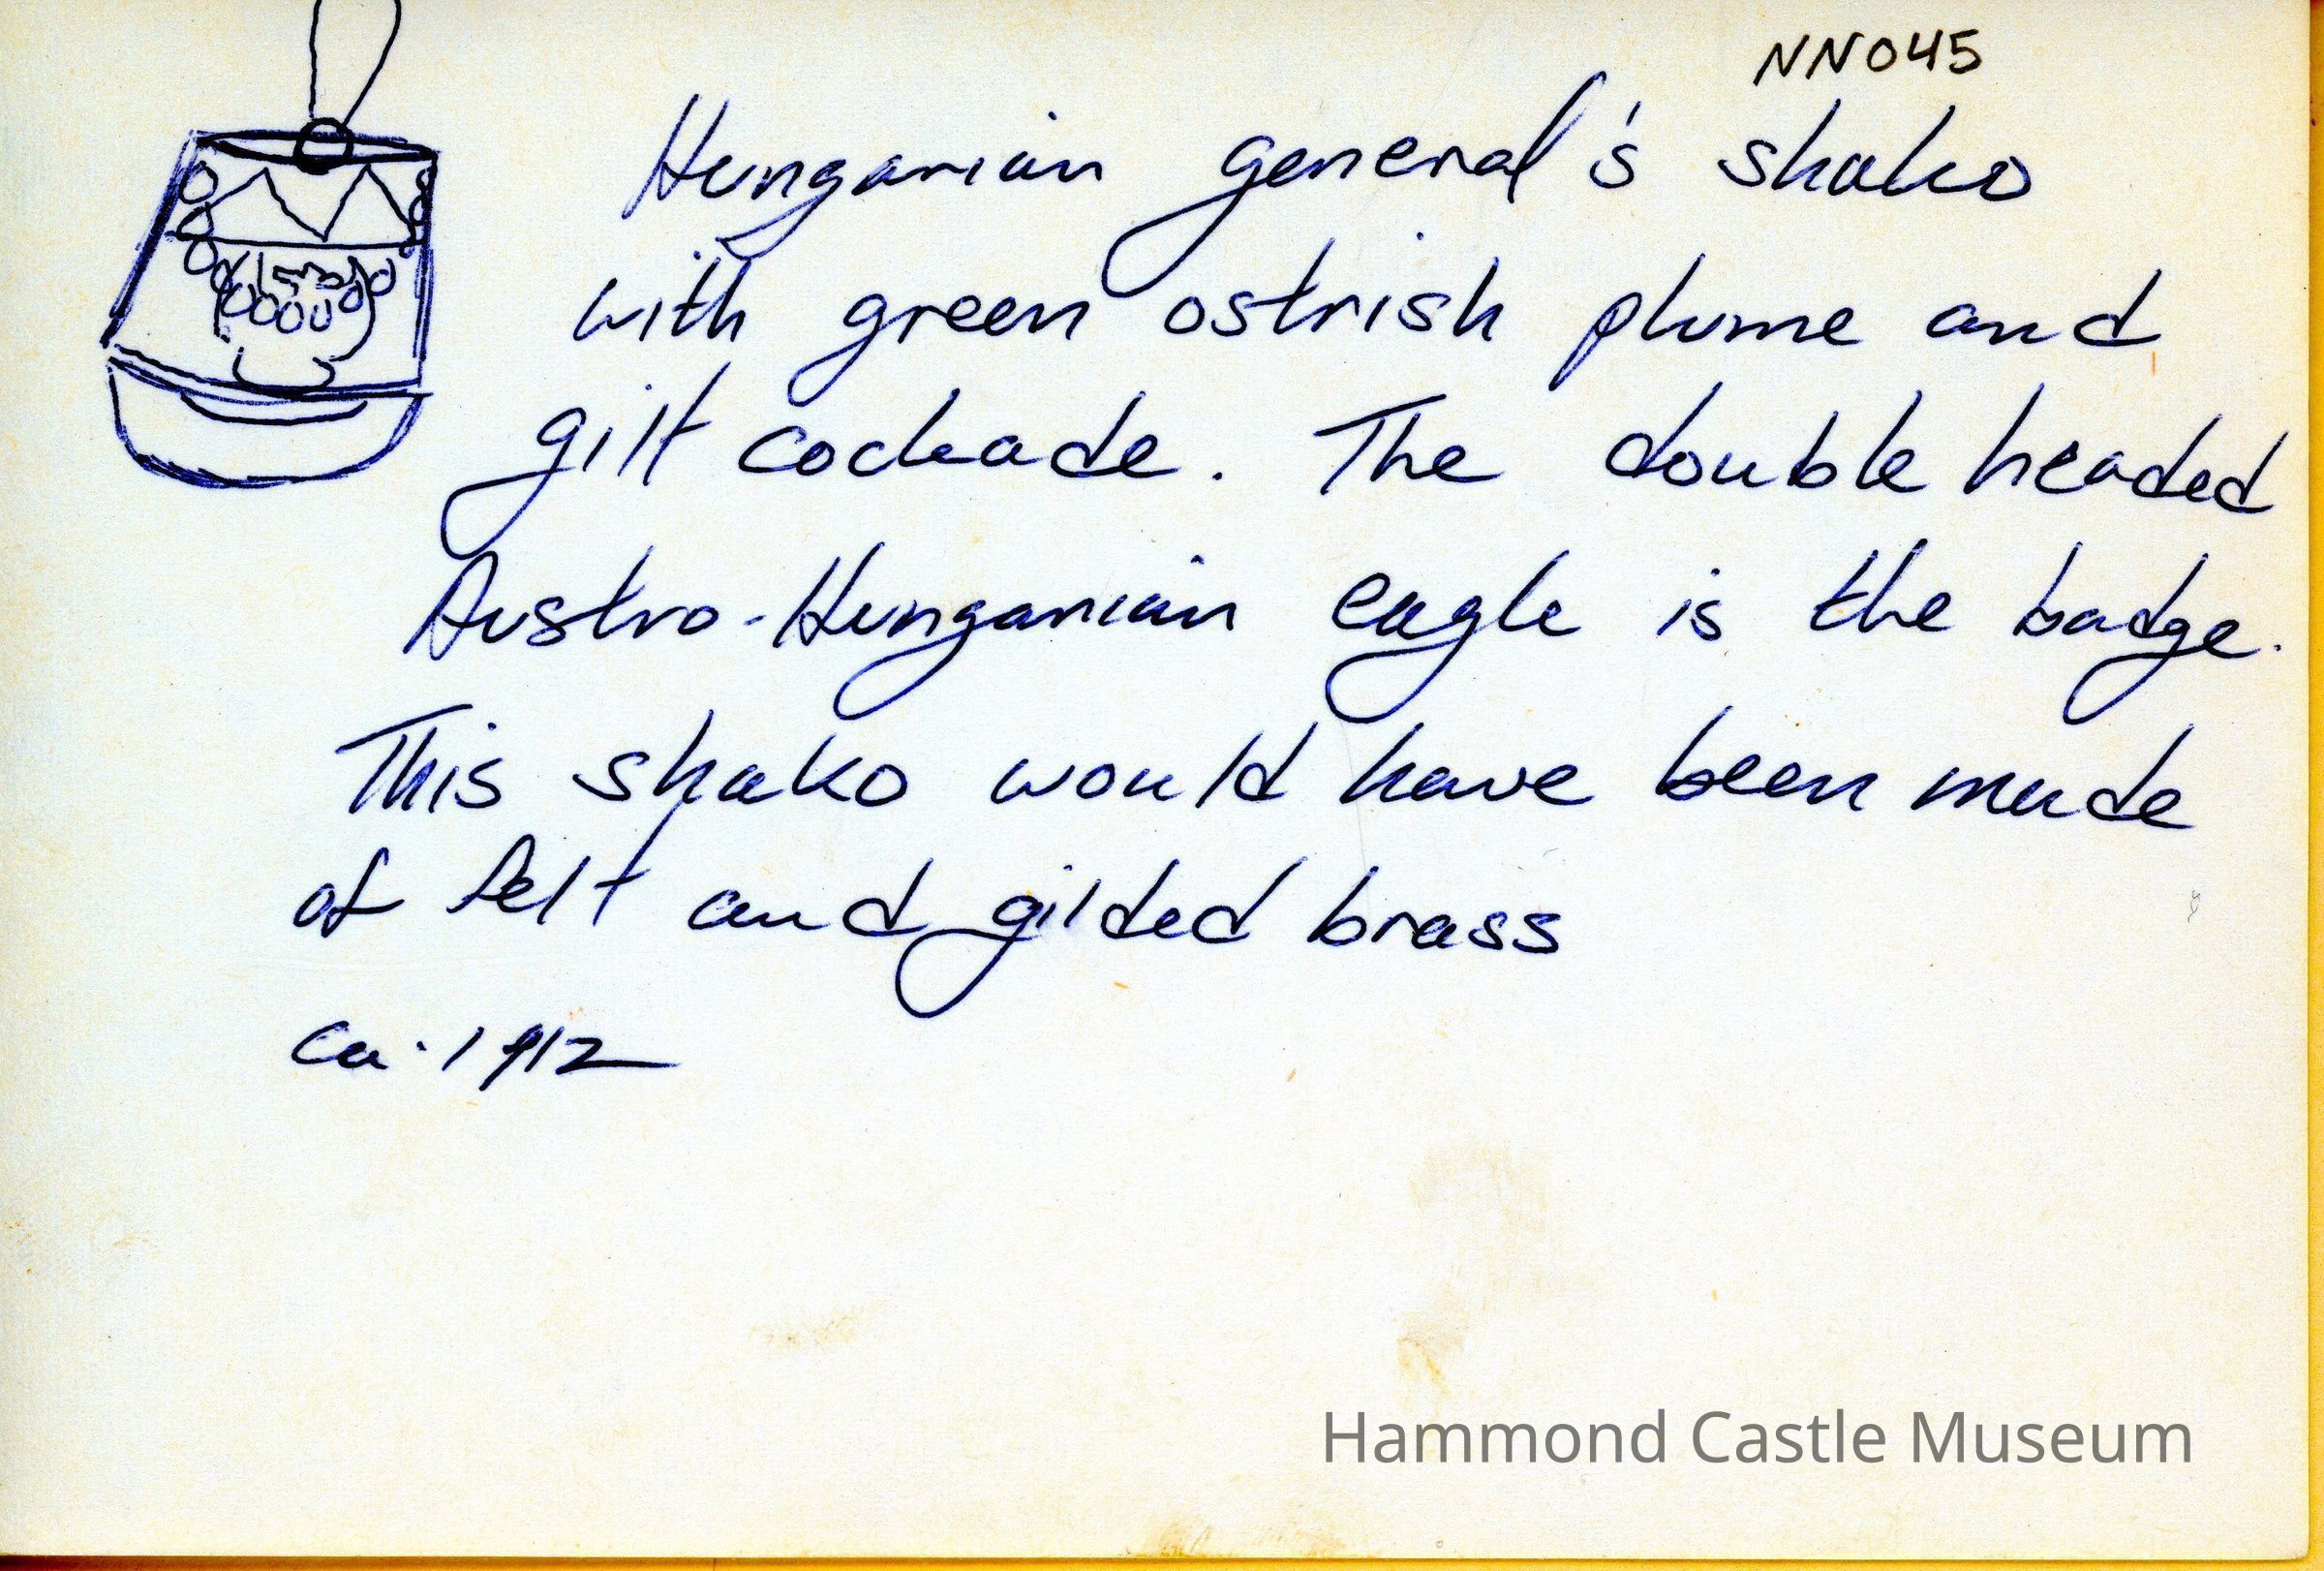 NN045
Hungarian general's shako
with green ostrish plume and
gilt cockade. The double headed
Austro-Hungarian eagle is the badge.
This shako would have been made
of felt and gilded brass
ca. 1912
Hammond Castle Museum